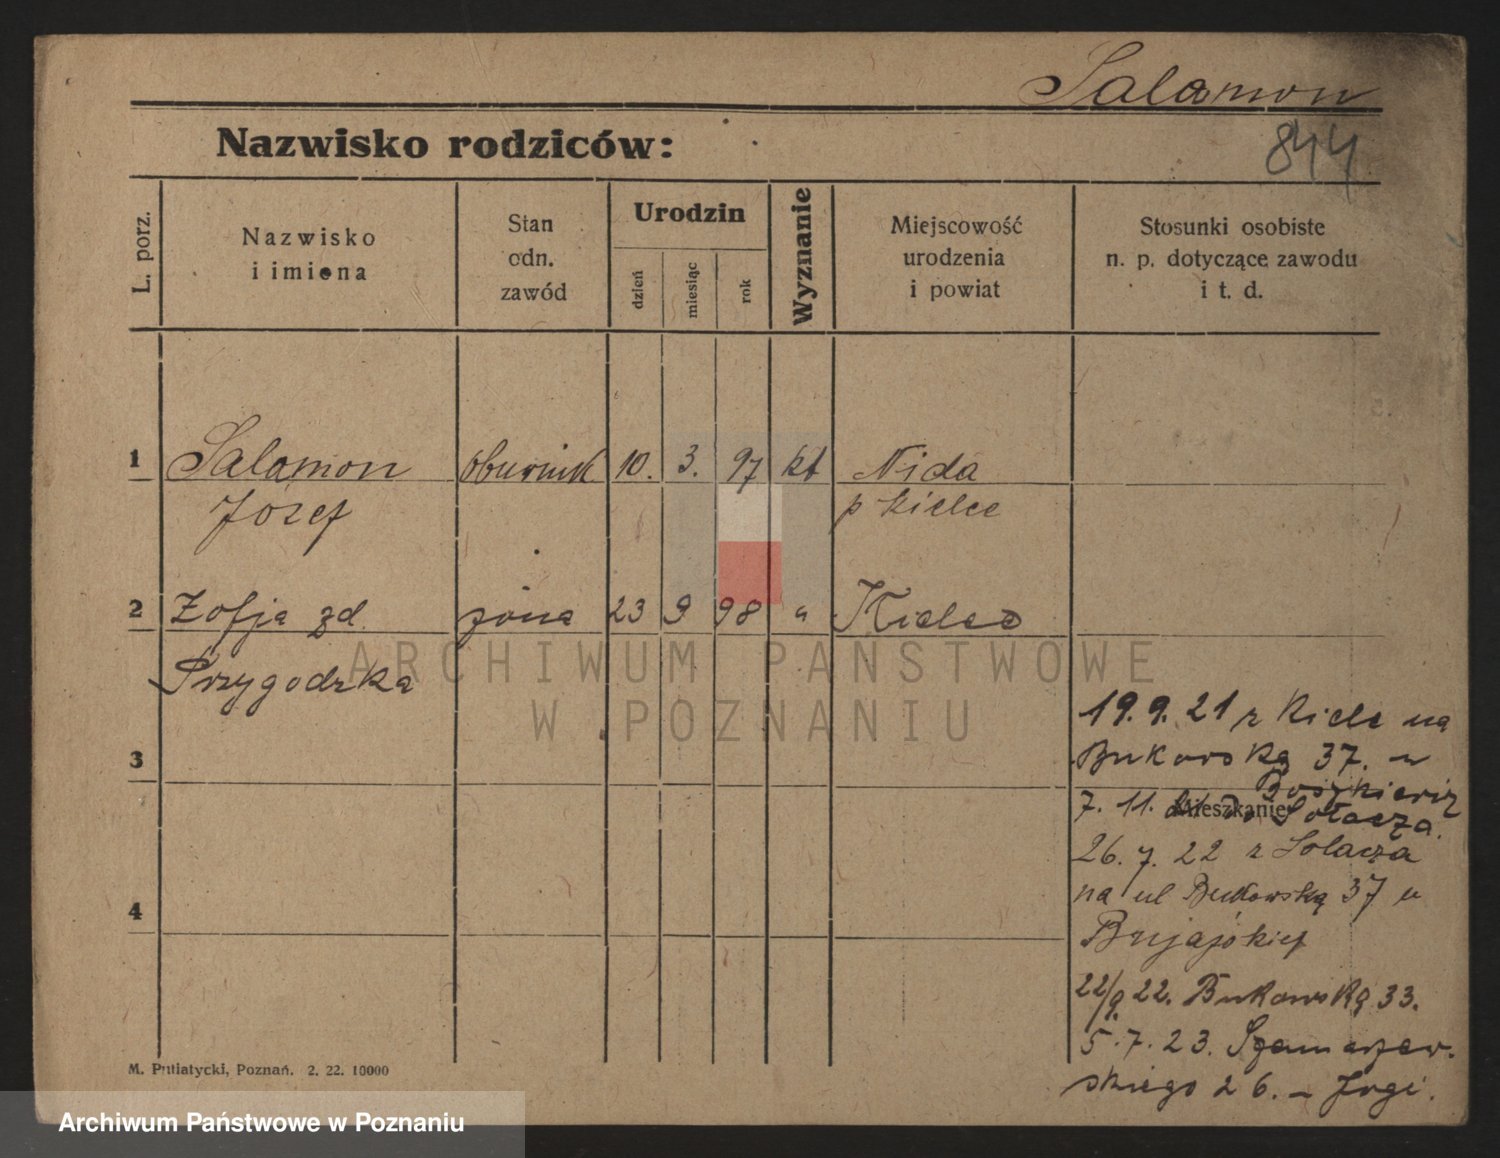 Salamon
Nazwisko rodziców:
844
L. porz.
Nazwisko
i imiona
Stan
odn.
zawód
Urodzin
dzień
miesiąc
rok
Wyznanie
Miejscowość
urodzenia
i powiat
Stosunki osobiste
n. p. dotyczące zawodu
i t. d.
1 Salamon 10. 3. 97 kt Nida
Józef p Kielce
2 Zofja zd. żona 23 9 98 " Kielce
Przygodzka
ARCHIWUM PAŃSTWOWE
W POZNANIU
19.9.21 z Kielc na
3
Bukowską 37. u
Mieszkanie
7. 11. Sołacza.
26. 7. 22 z Solacza
na ul Bukowską 37 u
4
22/9 22. Bukowską 33.
5.7.23. Szamarzew-
skiego 26. –
M. Putiatycki, Poznań. 2. 22. 10000
Archiwum Państwowe w Poznaniu